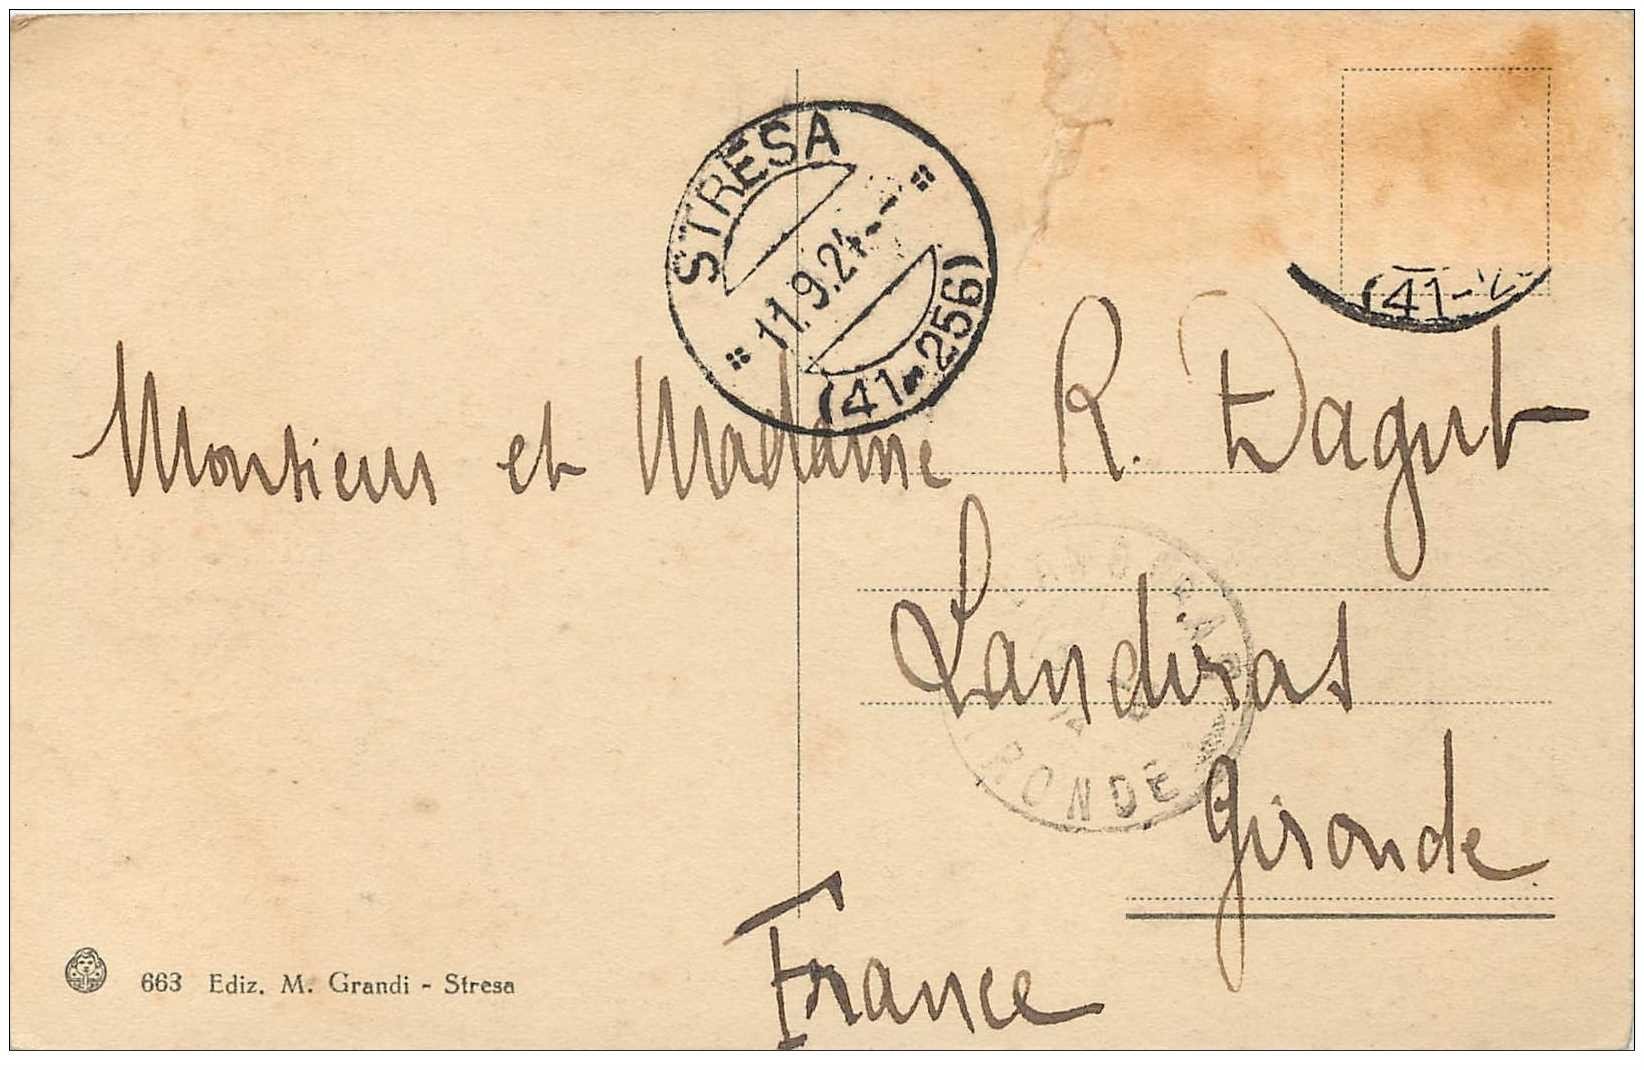 STRESA
11.9.24.--
(41-256)
(41-2
Monsieur et Madame R. Dagut
Landiras
LANDIRAS
GIRONDE
Gironde
France
663 Ediz. M. Grandi - Stresa